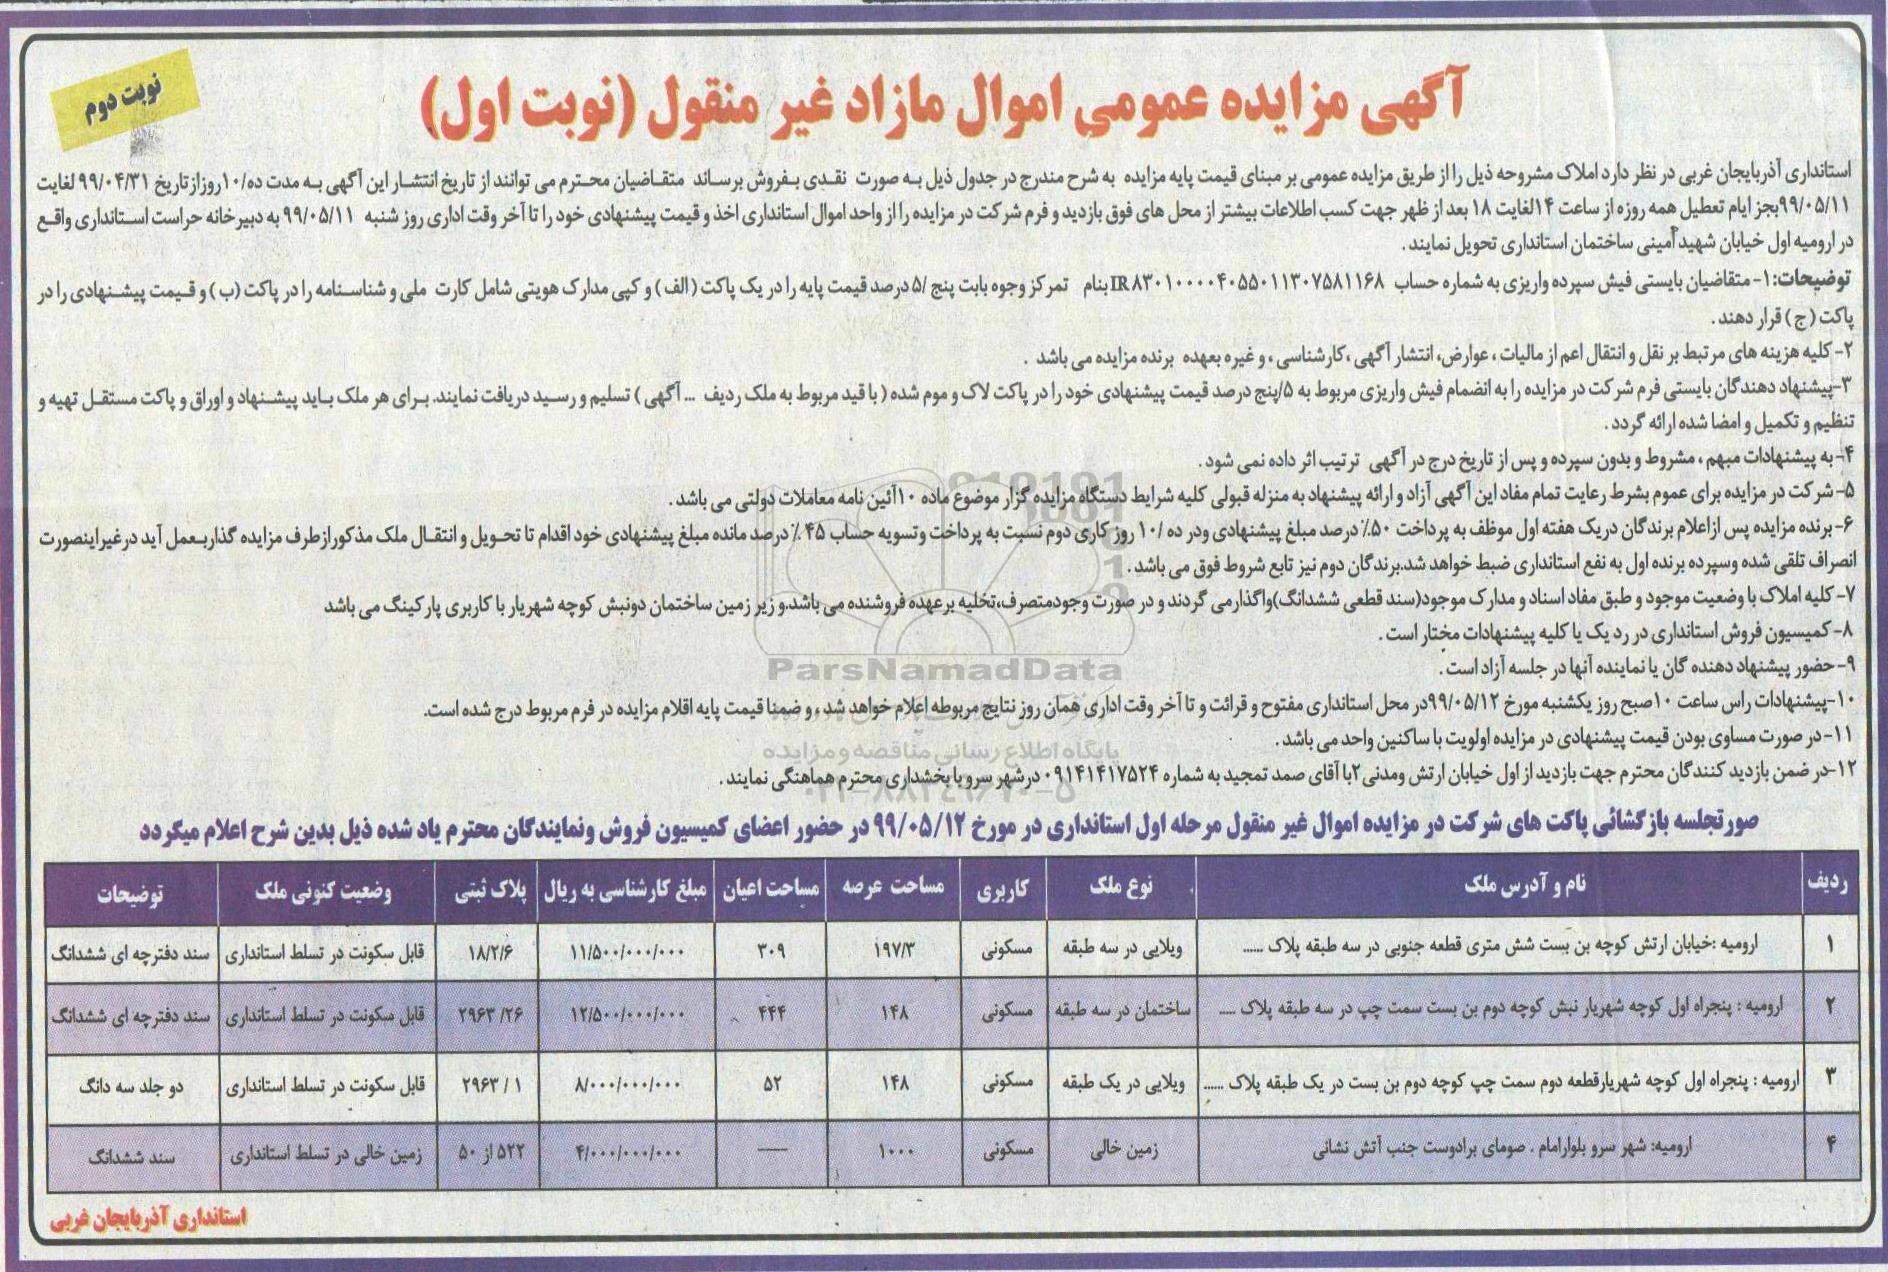 نوبت دوم
آگهی مزایده عمومی اموال مازاد غیر منقول (نوبت اول)
استانداری آذربایجان غربی در نظر دارد املاک مشروحه ذیل را از طریق مزایده عمومی بر مبنای قیمت پایه مزایده به شرح مندرج در جدول ذیل به صورت نقدی بفروش برساند متقاضیان محترم می توانند از تاریخ انتشار این آگهی به مدت ده/۱۰روزازتاریخ ۹۹/۰۴/۳۱ لغایت
۹۹/۰۵/۱۱بجز ایام تعطیل همه روزه از ساعت ۱۴لغایت ۱۸ بعد از ظهر جهت کسب اطلاعات بیشتر از محل های فوق بازدید و فرم شرکت در مزایده را از واحد اموال استانداری اخذ و قیمت پیشنهادی خود را تا آخر وقت اداری روز شنبه ۹۹/۰۵/۱۱ به دبیرخانه حراست استانداری واقع
در ارومیه اول خیابان شهید امینی ساختمان استانداری تحویل نمایند .
توضیحات:۱- متقاضیان بایستی فیش سپرده واریزی به شماره حساب IR۸۳۰۱۰۰۰۰۴۰۵۵۰۱۱۳۰۷۵۸۱۱۶۸ بنام تمرکز وجوه بابت پنج /۵ درصد قیمت پایه را در یک پاکت ( الف ) و کپی مدارک هویتی شامل کارت ملی و شناسنامه را در پاکت (ب ) و قیمت پیشنهادی را در
پاکت ( ج ) قرار دهند .
۲- کلیه هزینه های مرتبط بر نقل و انتقال اعم از مالیات ، عوارض، انتشار آگهی ،کارشناسی ، و غیره بعهده برنده مزایده می باشد .
۳-پیشنهاد دهندگان بایستی فرم شرکت در مزایده را به انضمام فیش واریزی مربوط به ۵/پنج درصد قیمت پیشنهادی خود را در پاکت لاک و موم شده ( با قید مربوط به ملک ردیف ... آگهی ) تسلیم و رسید دریافت نمایند. برای هر ملک باید پیشنهاد و اوراق و پاکت مستقل تهیه و
تنظیم و تکمیل و امضا شده ارائه گردد .
۴- به پیشنهادات مبهم ، مشروط و بدون سپرده و پس از تاریخ درج در آگهی ترتیب اثر داده نمی شود .
۵- شرکت در مزایده برای عموم بشرط رعایت تمام مفاد این آگهی آزاد و ارائه پیشنهاد به منزله قبولی کلیه شرایط دستگاه مزایده گزار موضوع ماده ۱۰آئین نامه معاملات دولتی می باشد .
۶- برنده مزایده پس ازاعلام برندگان دریک هفته اول موظف به پرداخت ۵۰٪ درصد مبلغ پیشنهادی ودر ده /۱۰ روز کاری دوم نسبت به پرداخت وتسویه حساب ۴۵ ٪ درصد مانده مبلغ پیشنهادی خود اقدام تا تحویل و انتقال ملک مذکورازطرف مزایده گذاربعمل آید درغیراینصورت
انصراف تلقی شده وسپرده برنده اول به نفع استانداری ضبط خواهد شد.برندگان دوم نیز تابع شروط فوق می باشد .
۷- کلیه املاک با وضعیت موجود و طبق مفاد اسناد و مدارک موجود(سند قطعی ششدانگ)واگذارمی گردند و در صورت وجودمتصرف،تخلیه برعهده فروشنده می باشد.و زیر زمین ساختمان دونبش کوچه شهریار با کاربری پارکینگ می باشد
۸- کمیسیون فروش استانداری در رد یک یا کلیه پیشنهادات مختار است .
۹- حضور پیشنهاد دهنده گان یا نماینده آنها در جلسه آزاد است .
۱۰-پیشنهادات راس ساعت ۱۰صبح روز یکشنبه مورخ ۹۹/۰۵/۱۲در محل استانداری مفتوح و قرائت و تا آخر وقت اداری همان روز نتایج مربوطه اعلام خواهد شد ، و ضمنا قیمت پایه اقلام مزایده در فرم مربوط درج شده است.
۱۱- در صورت مساوی بودن قیمت پیشنهادی در مزایده اولویت با ساکنین واحد می باشد .
۱۲-در ضمن بازدید کنندگان محترم جهت بازدید از اول خیابان ارتش ومدنی۲با آقای صمد تمجید به شماره ۰۹۱۴۱۴۱۷۵۲۴ درشهر سرو با بخشداری محترم هماهنگی نمایند .
ParsNamadData
پایگاه اطلاع رسانی مناقصه و مزایده
۰۲۱-۸۸۳۴۹۶۷۰-۵
صورتجلسه بازگشائی پاکت های شرکت در مزایده اموال غیر منقول مرحله اول استانداری در مورخ ۹۹/۰۵/۱۲ در حضور اعضای کمیسیون فروش ونمایندگان محترم یاد شده ذیل بدین شرح اعلام میگردد
ردیف نام و آدرس ملک نوع ملک کاربری مساحت عرصه مساحت اعیان مبلغ کارشناسی به ریال پلاک ثبتی وضعیت کنونی ملک توضیحات
۱ ارومیه :خیابان ارتش کوچه بن بست شش متری قطعه جنوبی در سه طبقه پلاک ...... ویلایی در سه طبقه مسکونی ۱۹۷/۳ ۳۰۹ ۱۱/۵۰۰/۰۰۰/۰۰۰ ۱۸/۲/۶ قابل سکونت در تسلط استانداری سند دفترچه ای ششدانگ
۲ ارومیه : پنجراه اول کوچه شهریار نبش کوچه دوم بن بست سمت چپ در سه طبقه پلاک ..... ساختمان در سه طبقه مسکونی ۱۴۸ ۴۴۴ ۱۲/۵۰۰/۰۰۰/۰۰۰ ۲۹۶۳ /۲۶ قابل سکونت در تسلط استانداری سند دفترچه ای ششدانگ
۳ ارومیه : پنجراه اول کوچه شهریارقطعه دوم سمت چپ کوچه دوم بن بست در یک طبقه پلاک ...... ویلایی در یک طبقه مسکونی ۱۴۸ ۵۲ ۸/۰۰۰/۰۰۰/۰۰۰ ۲۹۶۳ / ۱ قابل سکونت در تسلط استانداری دو جلد سه دانگ
۴ ارومیه: شهر سرو بلوارامام . صومای برادوست جنب آتش نشانی زمین خالی مسکونی ۱۰۰۰ —— ۴/۰۰۰/۰۰۰/۰۰۰ ۵۲۲ از ۵۰ زمین خالی در تسلط استانداری سند ششدانگ
استانداری آذربایجان غربی